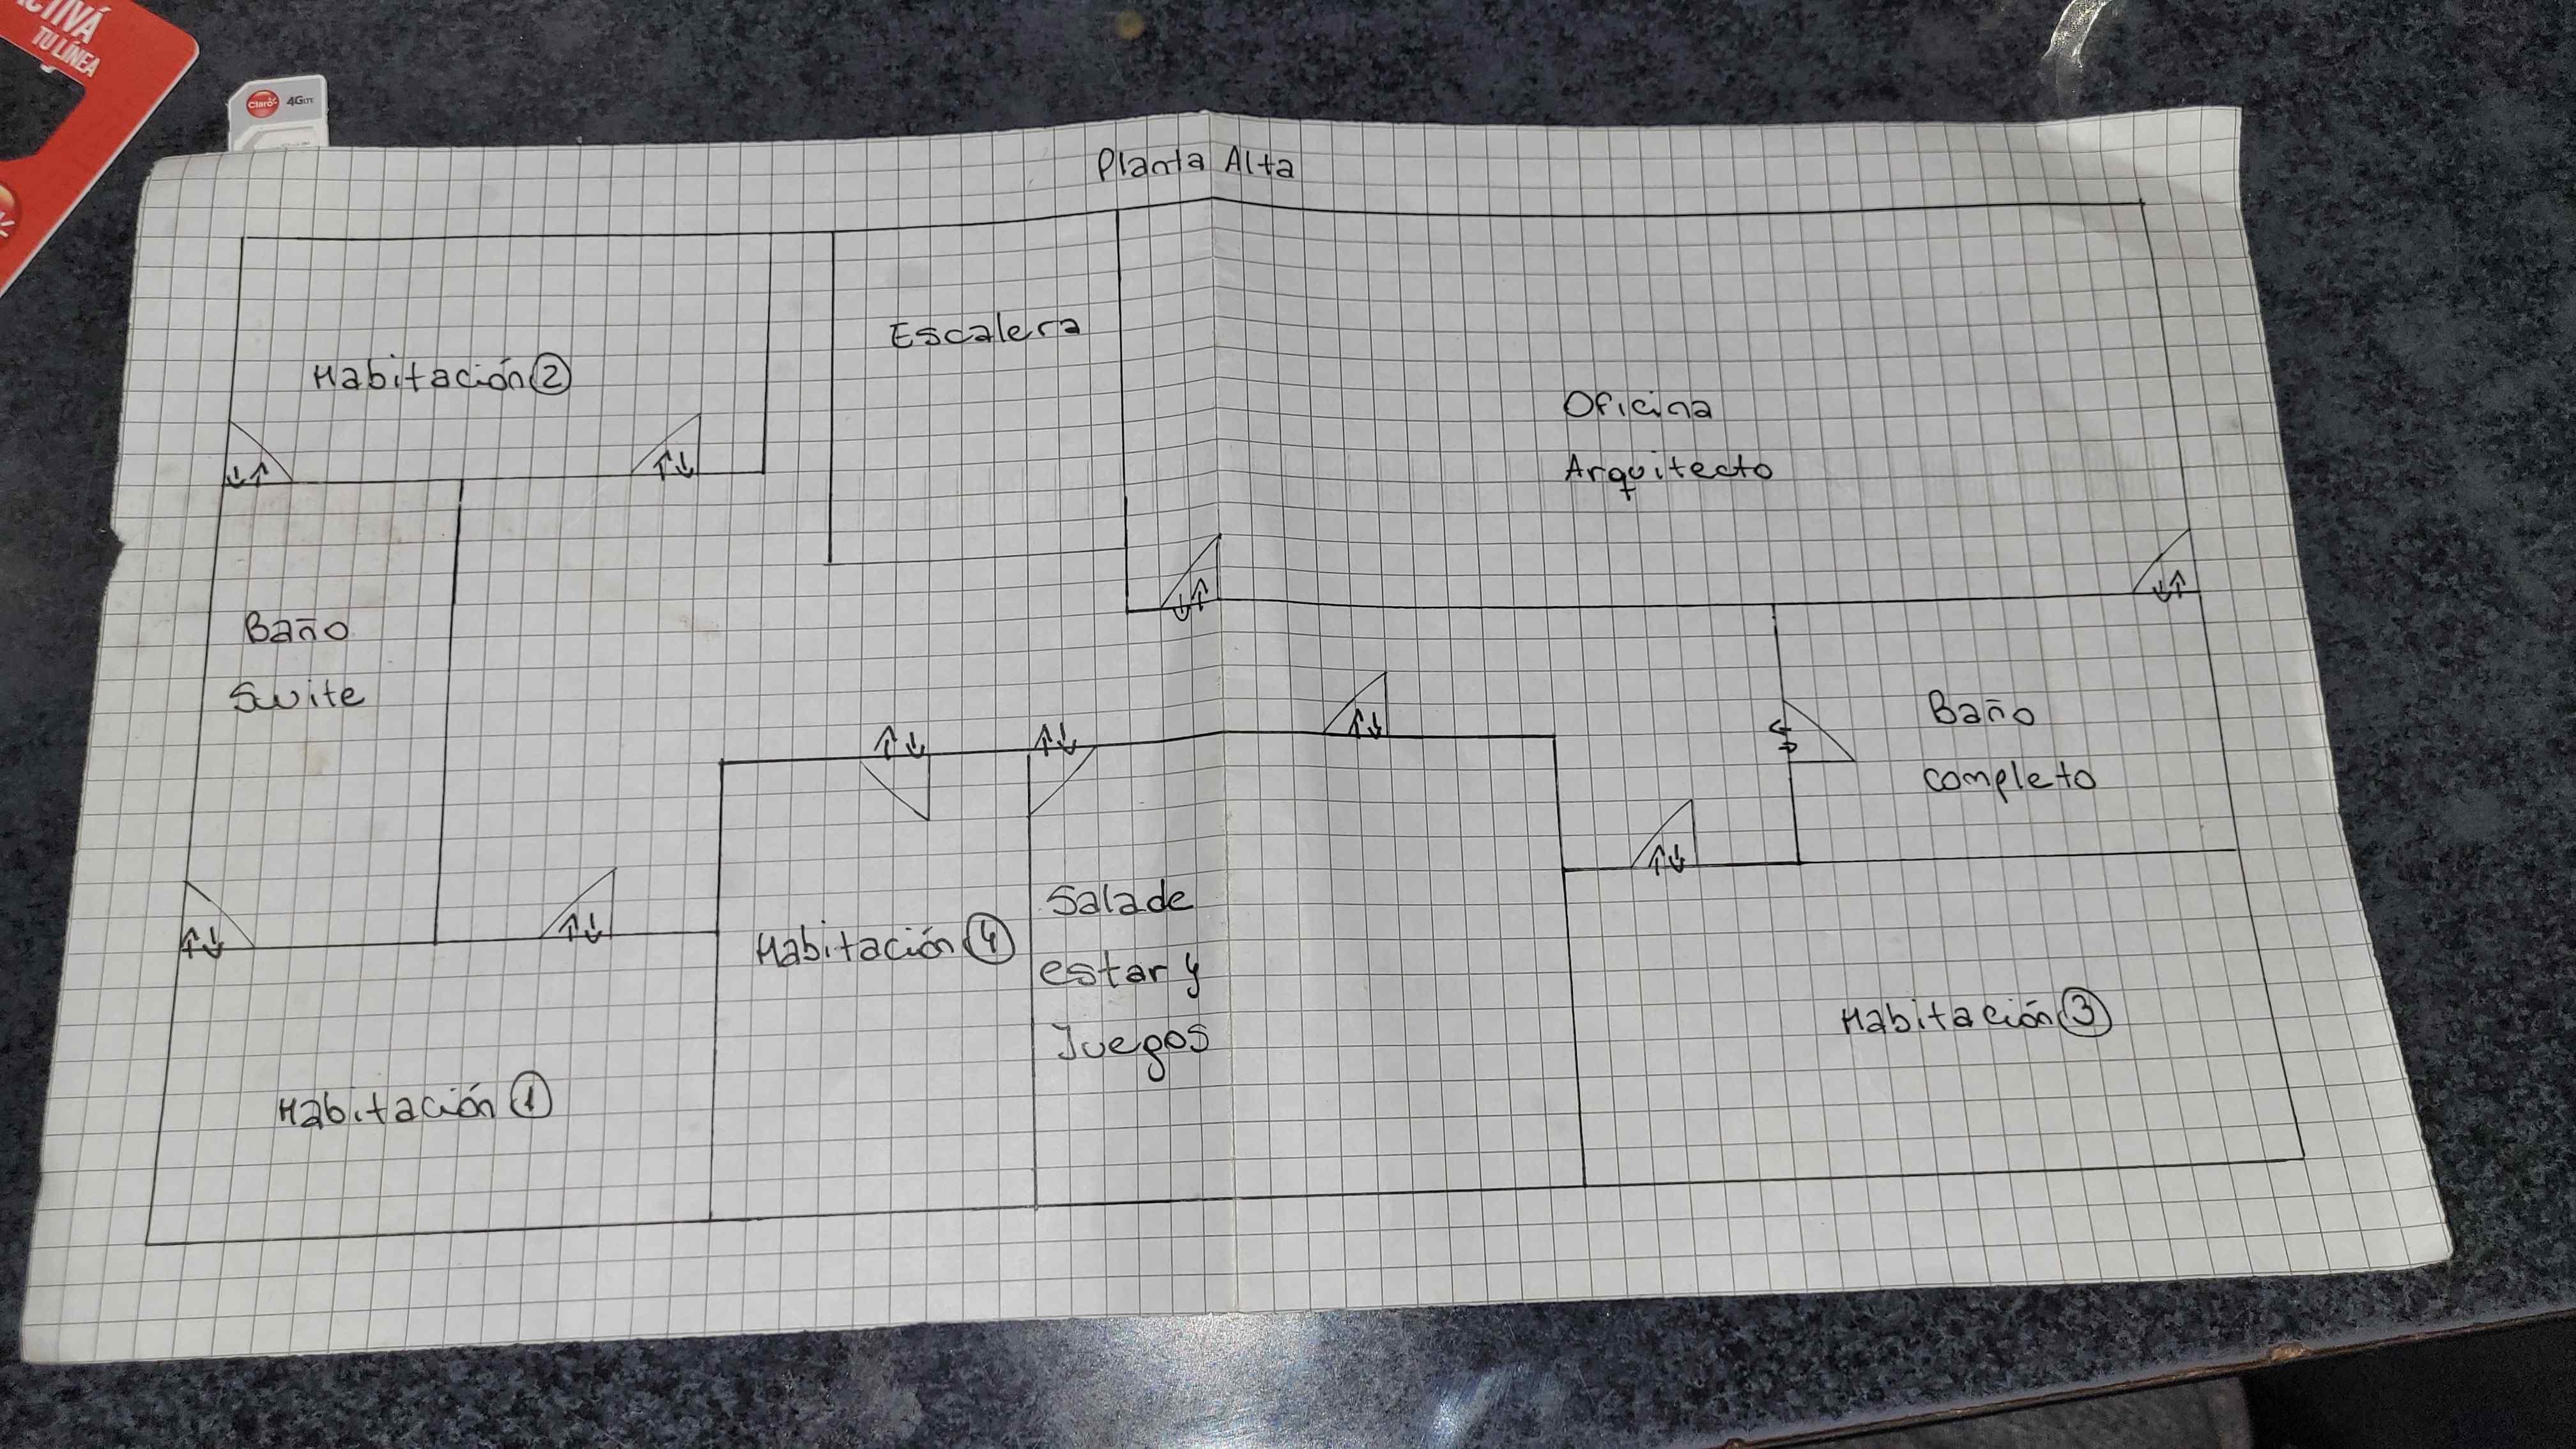 ACTIVÁ
TU LÍNEA
Claro
4G LTE
Planta Alta
Escalera
Habitación 2
Oficina
Arquitecto
Baño
Suite
Baño
completo
Salade
estar y
Juegos
Habitación 4
Habitación 3
Habitación 1